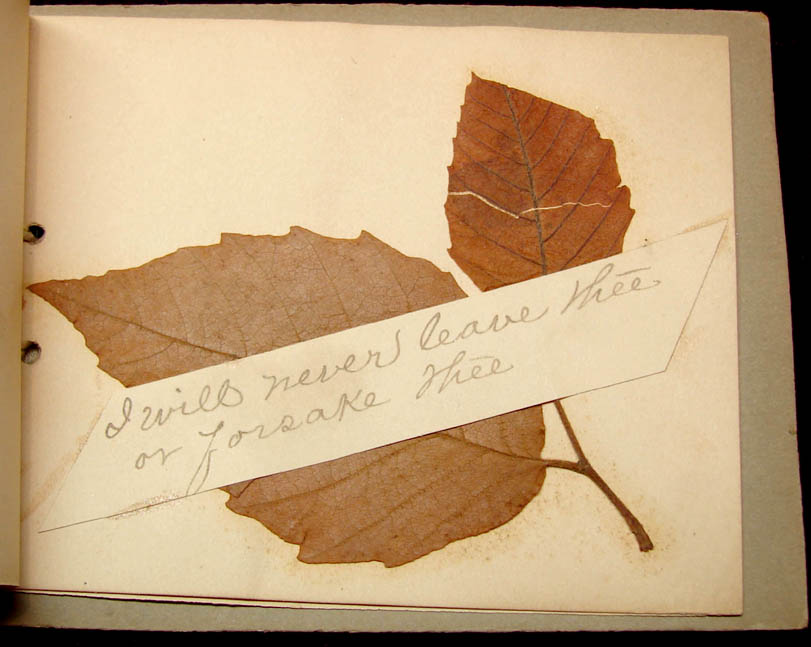 I will never leave thee
or forsake thee